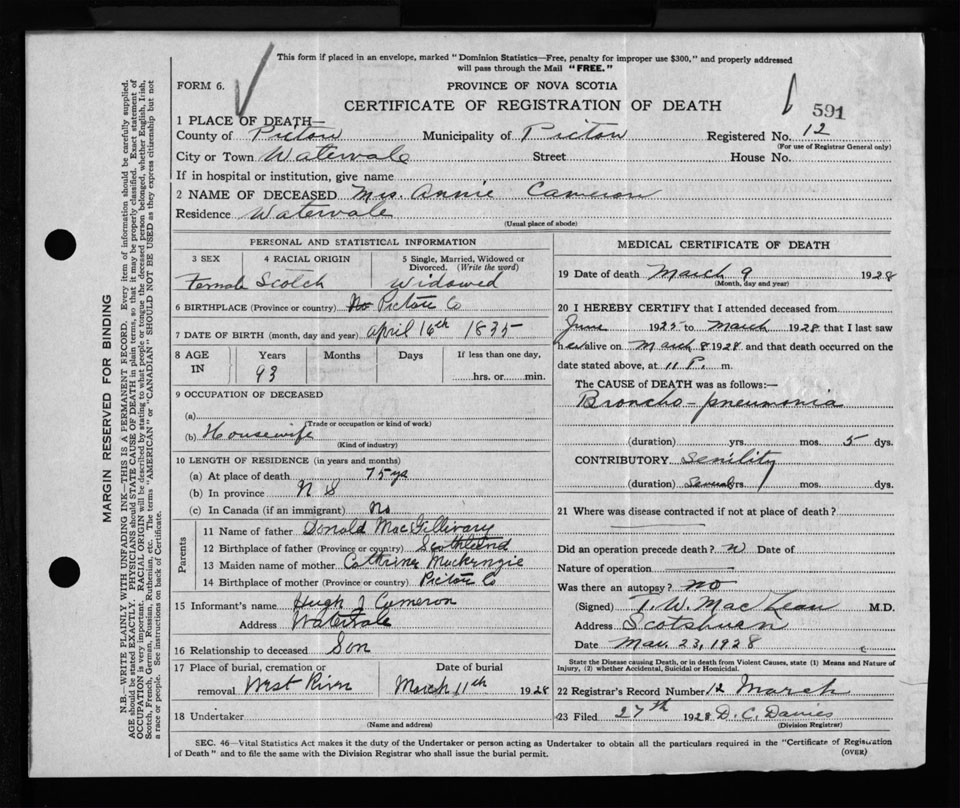 This form if placed in an envelope, marked "Dominion Statistics—Free, penalty for improper use $300," and properly addressed
will pass through the Mail "FREE."
FORM 6.
PROVINCE OF NOVA SCOTIA
CERTIFICATE OF REGISTRATION OF DEATH
591
1 PLACE OF DEATH—
County of Pictou Municipality of Pictou Registered No. 12
(For use of Registrar General only)
City or Town Watervale Street House No.
If in hospital or institution, give name
2 NAME OF DECEASED Mrs. Annie Cameron
Residence Watervale
(Usual place of abode)
PERSONAL AND STATISTICAL INFORMATION
3 SEX 4 RACIAL ORIGIN 5 Single, Married, Widowed or Divorced. (Write the word)
Female Scotch Widowed
6 BIRTHPLACE (Province or country) Pictou Co
7 DATE OF BIRTH (month, day and year) April 16th 1835
8 AGE IN Years Months Days If less than one day,
93 hrs. or min.
9 OCCUPATION OF DECEASED
(a)
(Trade or occupation or kind of work)
(b) Housewife
(Kind of industry)
10 LENGTH OF RESIDENCE (in years and months)
(a) At place of death 75 yrs
(b) In province N S
(c) In Canada (if an immigrant) No
Parents
11 Name of father Donald MacGillivary
12 Birthplace of father (Province or country) Scothland
13 Maiden name of mother Cathrine Mackenzie
14 Birthplace of mother (Province or country) Pictou Co
15 Informant's name Hugh J Cameron
Address Watervale
16 Relationship to deceased Son
17 Place of burial, cremation or removal West River Date of burial March 11th 1928
18 Undertaker
(Name and address)
MEDICAL CERTIFICATE OF DEATH
19 Date of death March 9 1928
(Month, day and year)
20 I HEREBY CERTIFY that I attended deceased from
June 1925 to March 1928 that I last saw
her alive on March 8 1928 and that death occurred on the
date stated above, at 11 P. m.
The CAUSE of DEATH was as follows:—
Broncho-pneumonia
(duration) yrs. mos. 5 dys.
CONTRIBUTORY Senility
(duration) yrs. mos. dys.
21 Where was disease contracted if not at place of death?
Did an operation precede death? Date of
Nature of operation
Was there an autopsy? no
(Signed) T. W. MacLean M.D.
Address
Date Mar. 23, 1928
State the Disease causing Death, or in death from Violent Causes, state (1) Means and Nature of
Injury, (2) whether Accidental, Suicidal or Homicidal.
22 Registrar's Record Number 12 March
23 Filed 27th 1928 D. C. Davies
(Division Registrar)
SEC. 46—Vital Statistics Act makes it the duty of the Undertaker or person acting as Undertaker to obtain all the particulars required in the "Certificate of Registration
of Death" and to file the same with the Division Registrar who shall issue the burial permit.
(OVER)
MARGIN RESERVED FOR BINDING
N.B.—WRITE PLAINLY WITH UNFADING INK—THIS IS A PERMANENT RECORD. Every item of information should be carefully supplied.
AGE should be stated EXACTLY. PHYSICIANS should STATE CAUSE OF DEATH in plain terms, so that it may be properly classified. Exact statement of
OCCUPATION is very important. RACIAL ORIGIN will be described by stating to what people or tongue the deceased person belonged, whether English, Irish,
Scotch, French, German, Russian, Ruthenian, etc. The terms "AMERICAN" or "CANADIAN" SHOULD NOT BE USED as they express citizenship but not
a race or people. See instructions on back of Certificate.